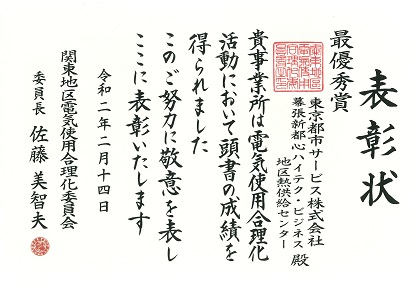 表彰状
最優秀賞
東京都市サービス株式会社
幕張新都心ハイテク・ビジネス
地区熱供給センター
殿
貴事業所は電気使用合理化
活動において頭書の成績を
得られました
このご努力に敬意を表し
ここに表彰いたします
令和二年二月十四日
関東地区電気使用合理化委員会
委員長 佐藤美智夫